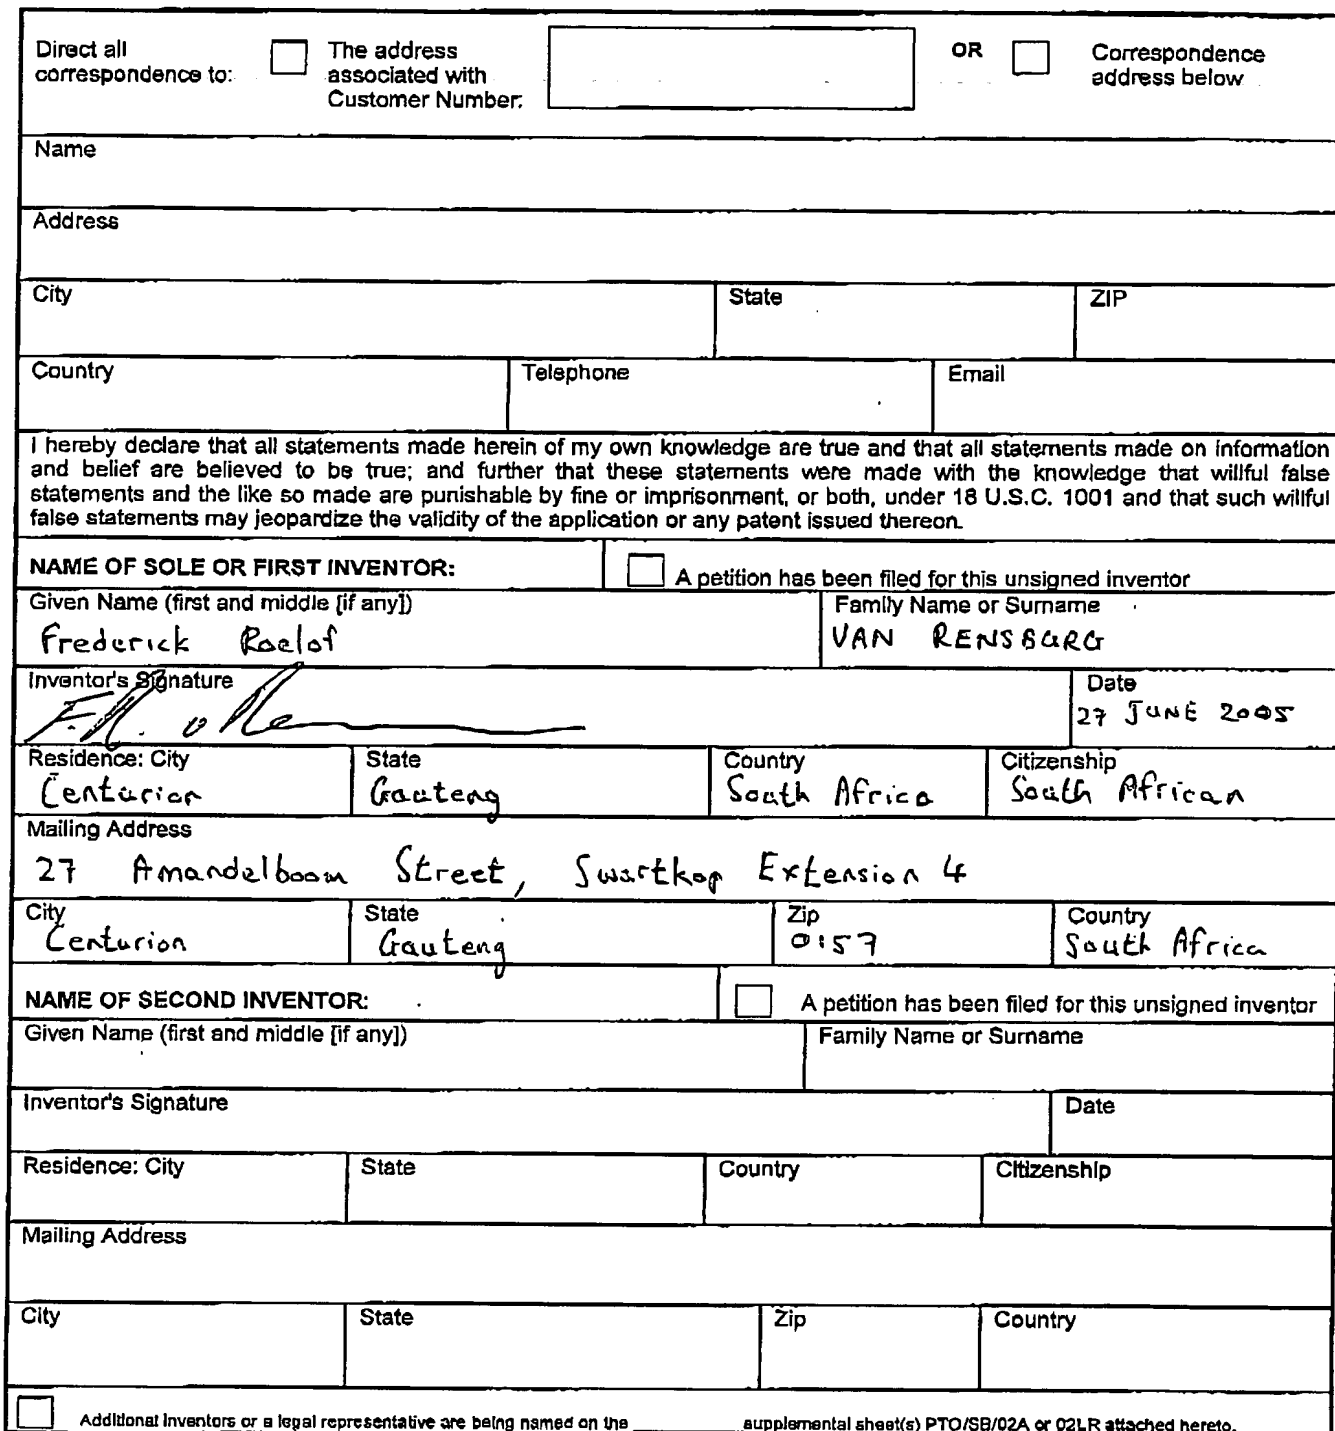 Direct all The address OR Correspondence
correspondence to: associated with address below
Customer Number:
Name
Address
City State ZIP
Country Telephone Email
I hereby declare that all statements made herein of my own knowledge are true and that all statements made on information
and belief are believed to be true; and further that these statements were made with the knowledge that willful false
statements and the like so made are punishable by fine or imprisonment, or both, under 18 U.S.C. 1001 and that such willful
false statements may jeopardize the validity of the application or any patent issued thereon.
NAME OF SOLE OR FIRST INVENTOR: A petition has been filed for this unsigned inventor
Given Name (first and middle [if any]) Family Name or Surname
Frederick Roelof VAN RENSBURG
Inventor's Signature Date
27 JUNE 2005
Residence: City State Country Citizenship
Centurion Gauteng South Africa South African
Mailing Address
27 Amandelboom Street, Swartkop Extension 4
City State Zip Country
Centurion Gauteng 0157 South Africa
NAME OF SECOND INVENTOR: A petition has been filed for this unsigned inventor
Given Name (first and middle [if any]) Family Name or Surname
Inventor's Signature Date
Residence: City State Country Citizenship
Mailing Address
City State Zip Country
Additional inventors or a legal representative are being named on the ________ supplemental sheet(s) PTO/SB/02A or 02LR attached hereto.